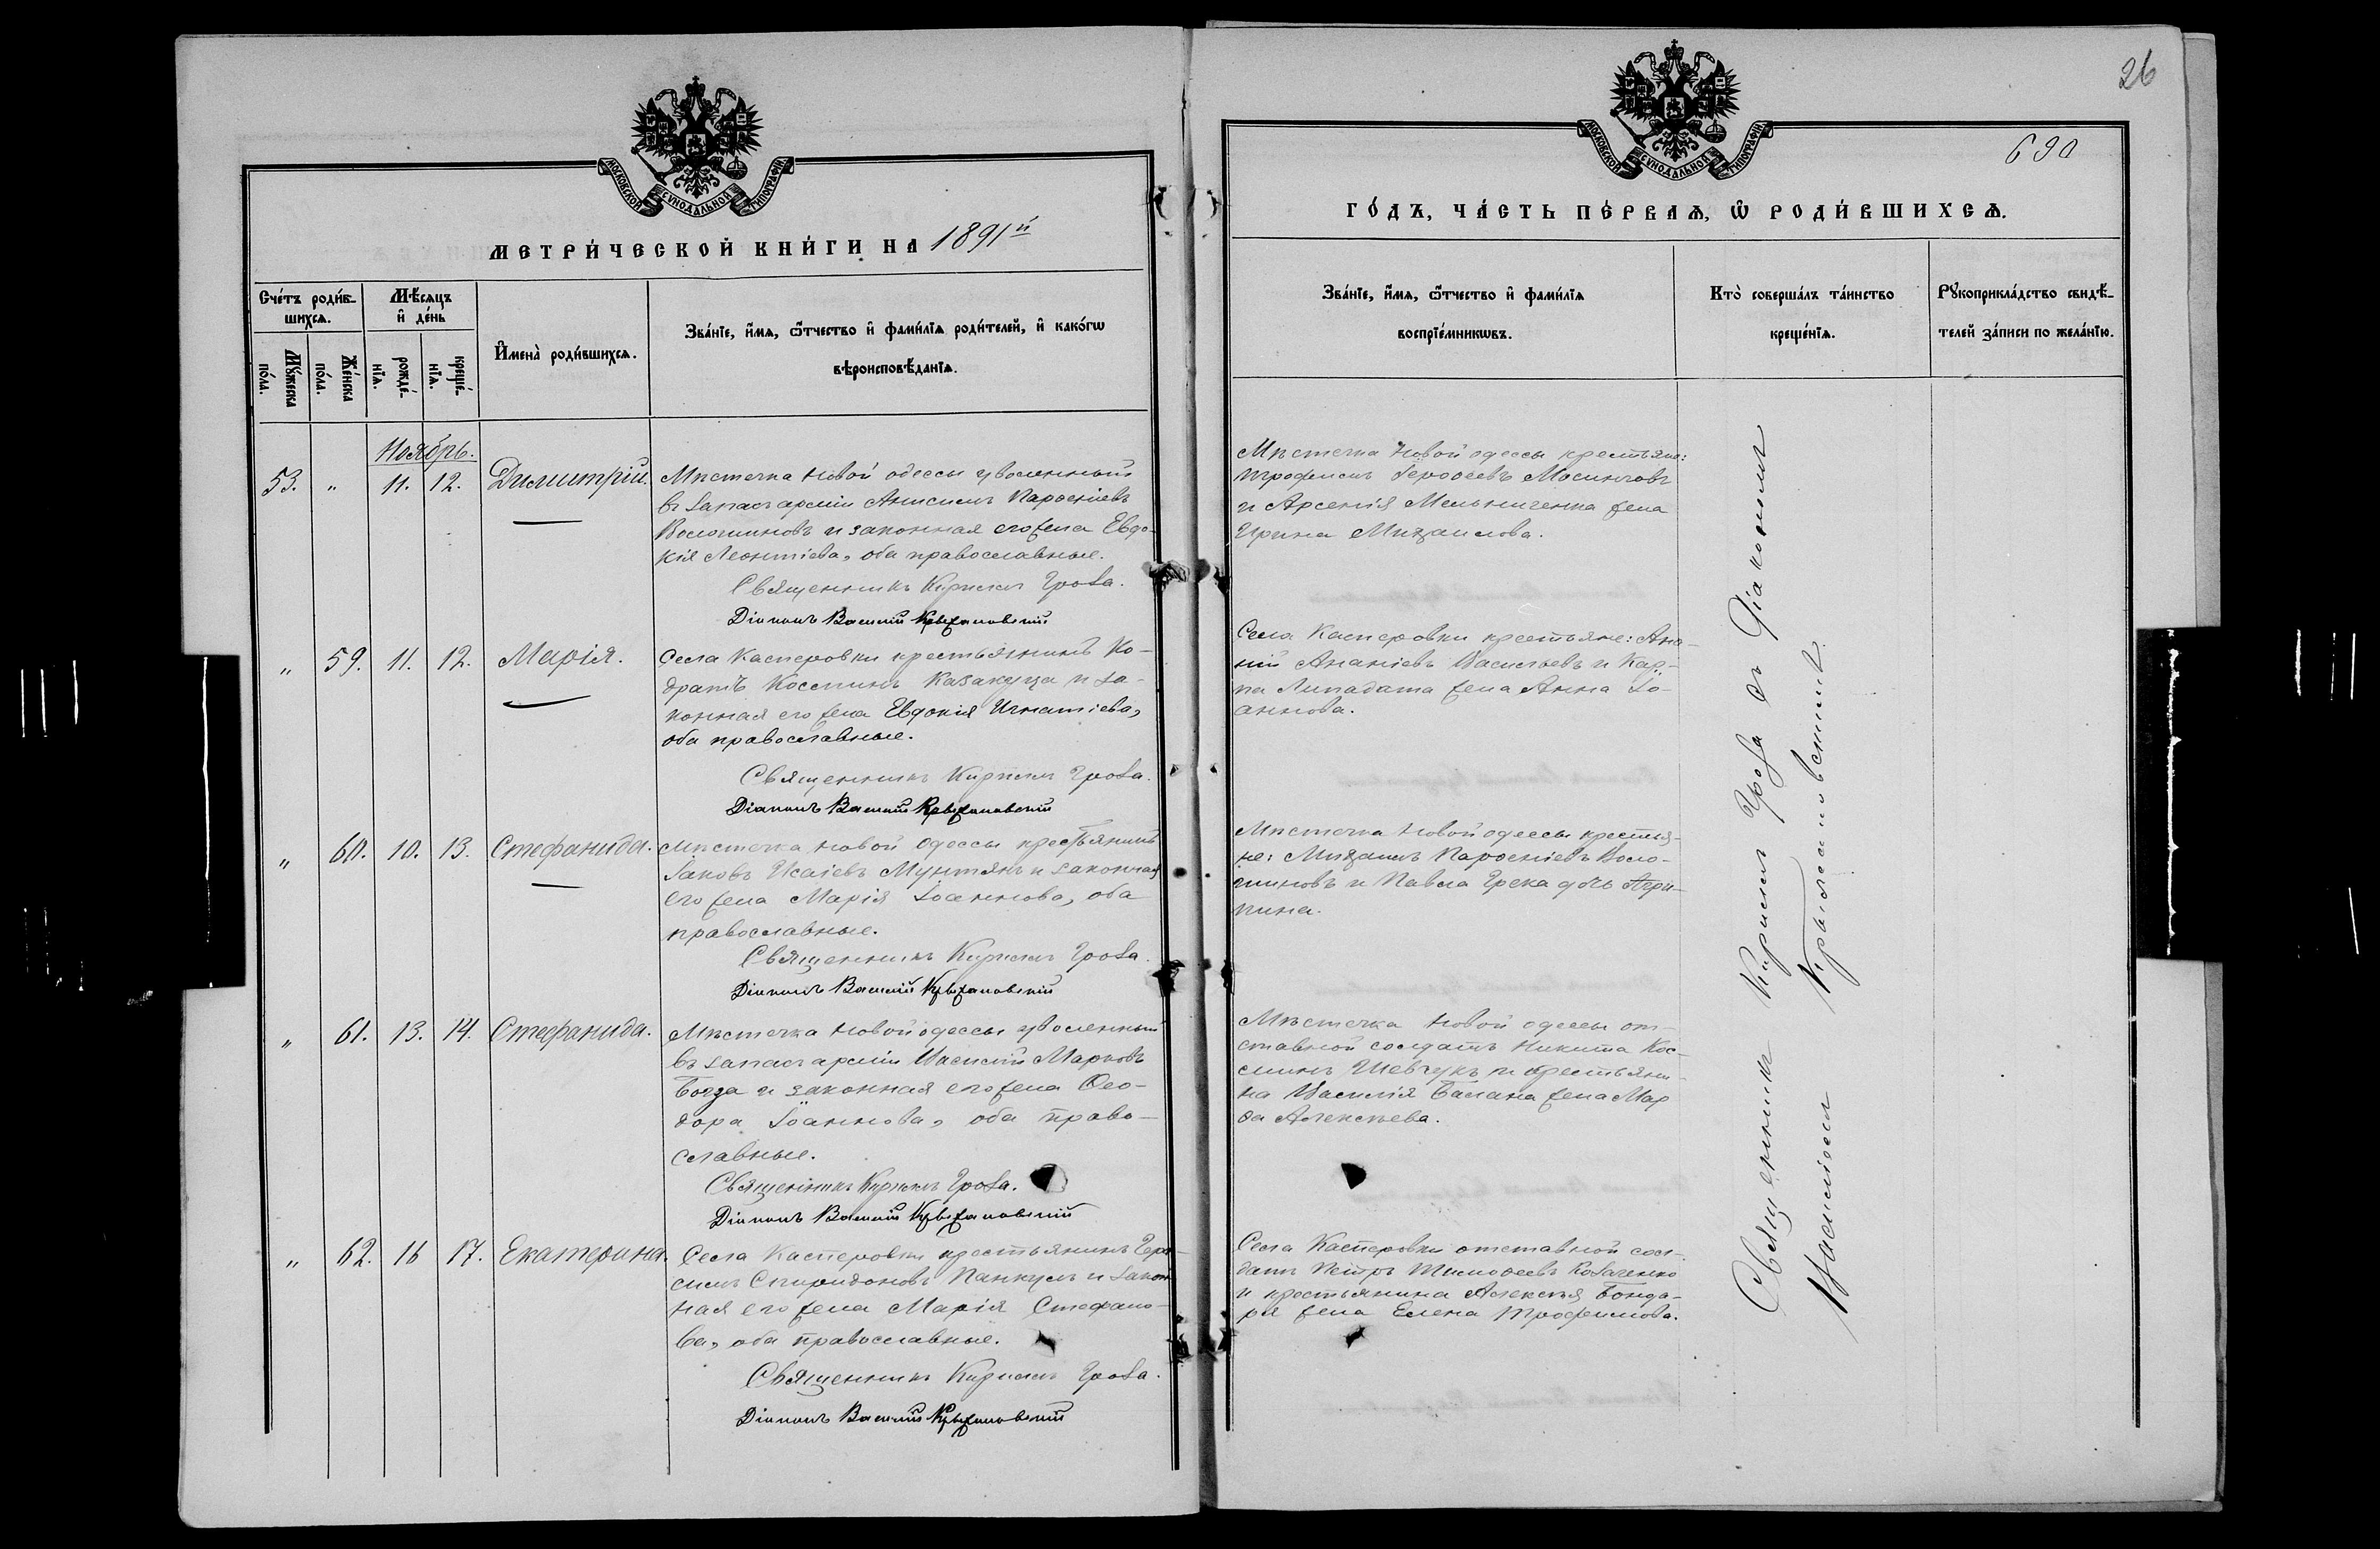 МОСКОВСКОЙ СѴНОДАЛЬНОЙ ТИПОГРАФІИ
МЕТРИ́ЧЕСКОЙ КНИ́ГИ НА 1891й
Сче́тъ роди́в-
шихсѧ.
Мѣ́сѧцъ
и҆ де́нь
Мꙋ́жеска
по́ла.
Же́нска
по́ла.
рожде́-
нїѧ.
креще́-
нїѧ.
И҆мена̀ роди́вшихсѧ.
Зва́нїе, и҆́мѧ, ѻ҆́тчество и҆ фами́лїѧ роди́телей, и҆ како́гѡ
вѣроисповѣ́данїѧ.
Ноябрь.
53. „ 11. 12. Димитрій.
Мѣстечка Новой Одессы уволенный
въ запасъ арміи Анисимъ Парѳеніевъ
Волошиновъ и законная его жена Евдо-
кія Леонтіева, оба православные.
Священникъ Кириллъ Гроза.
Діаконъ Василій Крыжановскій
„ 59. 11. 12. Марія.
Села Касперовки крестьянинъ Ко-
дратъ Косминъ Казакуца и за-
конная его жена Евдокія Игнатіева,
оба православные.
Священникъ Кириллъ Гроза.
Діаконъ Василій Крыжановскій
„ 60. 10. 13. Стефанида.
Мѣстечка Новой Одессы крестьянинъ
Іаковъ Исаіевъ Мунтянъ и законная
его жена Марія Іоаннова, оба
православные.
Священникъ Кириллъ Гроза.
Діаконъ Василій Крыжановскій
„ 61. 13. 14. Стефанида.
Мѣстечка Новой Одессы уволенный
въ запасъ арміи Василій Марковъ
и законная его жена Ѳео-
дора Іоаннова, оба право-
славные.
Священникъ Кириллъ Гроза.
Діаконъ Василій Крыжановскій
„ 62. 16 17. Екатерина.
Села Касперовки крестьянинъ Гера-
симъ Спиридоновъ и закон-
ная его жена Марія Стефано-
ва, оба православные.
Священникъ Кириллъ Гроза.
Діаконъ Василій Крыжановскій
26
690
МОСКОВСКОЙ СѴНОДАЛЬНОЙ ТИПОГРАФІИ
ГО́ДЪ, ЧА́СТЬ ПЕ́РВАѦ, Ѡ҆ РОДИ́ВШИХСѦ.
Зва́нїе, и҆́мѧ, ѻ҆́тчество и҆ фами́лїѧ
воспрїе́мникѡвъ.
Кто̀ соверша́лъ та́инство
креще́нїѧ.
Рꙋкоприкла́дство свидѣ́-
телей за́писи по жела́нїю.
Мѣстечка Новой Одессы крестьяне:
Трофимъ
и Арсенія Мельниченка жена
Ирина Михаилова.
Села Касперовки крестьяне: Ана-
ній Ананіевъ Васильевъ и Кар-
па жена Анна Іо-
аннова.
Мѣстечка Новой Одессы крестья-
не: Михаилъ Парѳеніевъ Воло-
шиновъ и Павла Грека дочь Агри-
пина.
Мѣстечка Новой Одессы от-
ставной солдатъ Никита Кос-
минъ Шевчукъ и крестьяни-
на Василія Балана жена Мар
ѳа Алексѣева.
Села Касперовки отставной сол-
датъ Петръ Тимоѳеевъ Козаченко
и крестьянина Алексѣя Бонда-
ря жена Елена Трофимова.
Священникъ Кириллъ Гроза съ Діакономъ
Василіемъ Крыжановскимъ.